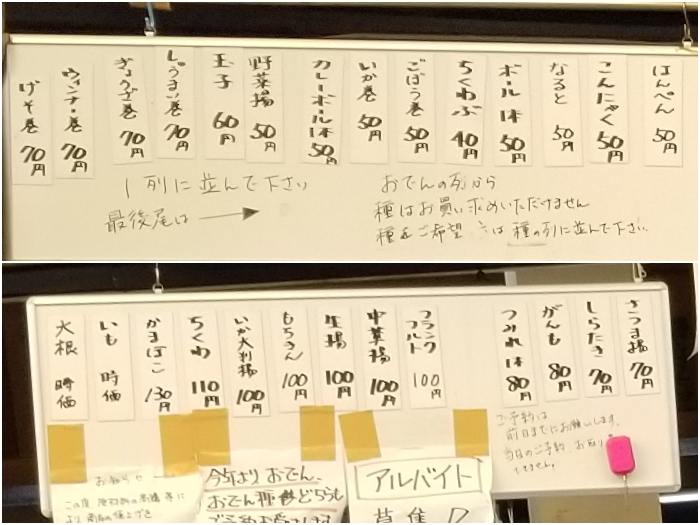 はんぺん 50円
こんにゃく 50円
なると 50円
ボール 1本 50円
ちくわぶ 40円
ごぼう巻 50円
いか巻 50円
カレーボール 1本 50円
野菜揚 50円
玉子 60円
しゅうまい巻 70円
ぎょうざ巻 70円
ウィンナー巻 70円
げそ巻 70円
1列に並んで下さい
最後尾は→
おでんの列から
種はお買い求めいただけません
種をご希望 は種の列に並んで下さい
さつま揚 70円
しらたき 70円
がんも 80円
つみれ 1本 80円
フランクフルト 100円
中華揚 100円
生揚 100円
もちきん 100円
いか大判揚 100円
ちくわ 110円
かまぼこ 130円
いも 時価
大根 時価
ご予約は
前日までにお願いします。
当日のご予約 お取り
できません。
お知らせ
この度 原材料の高騰 等に
より
今年より おでん、
おでん種 どちらも
アルバイト
募集